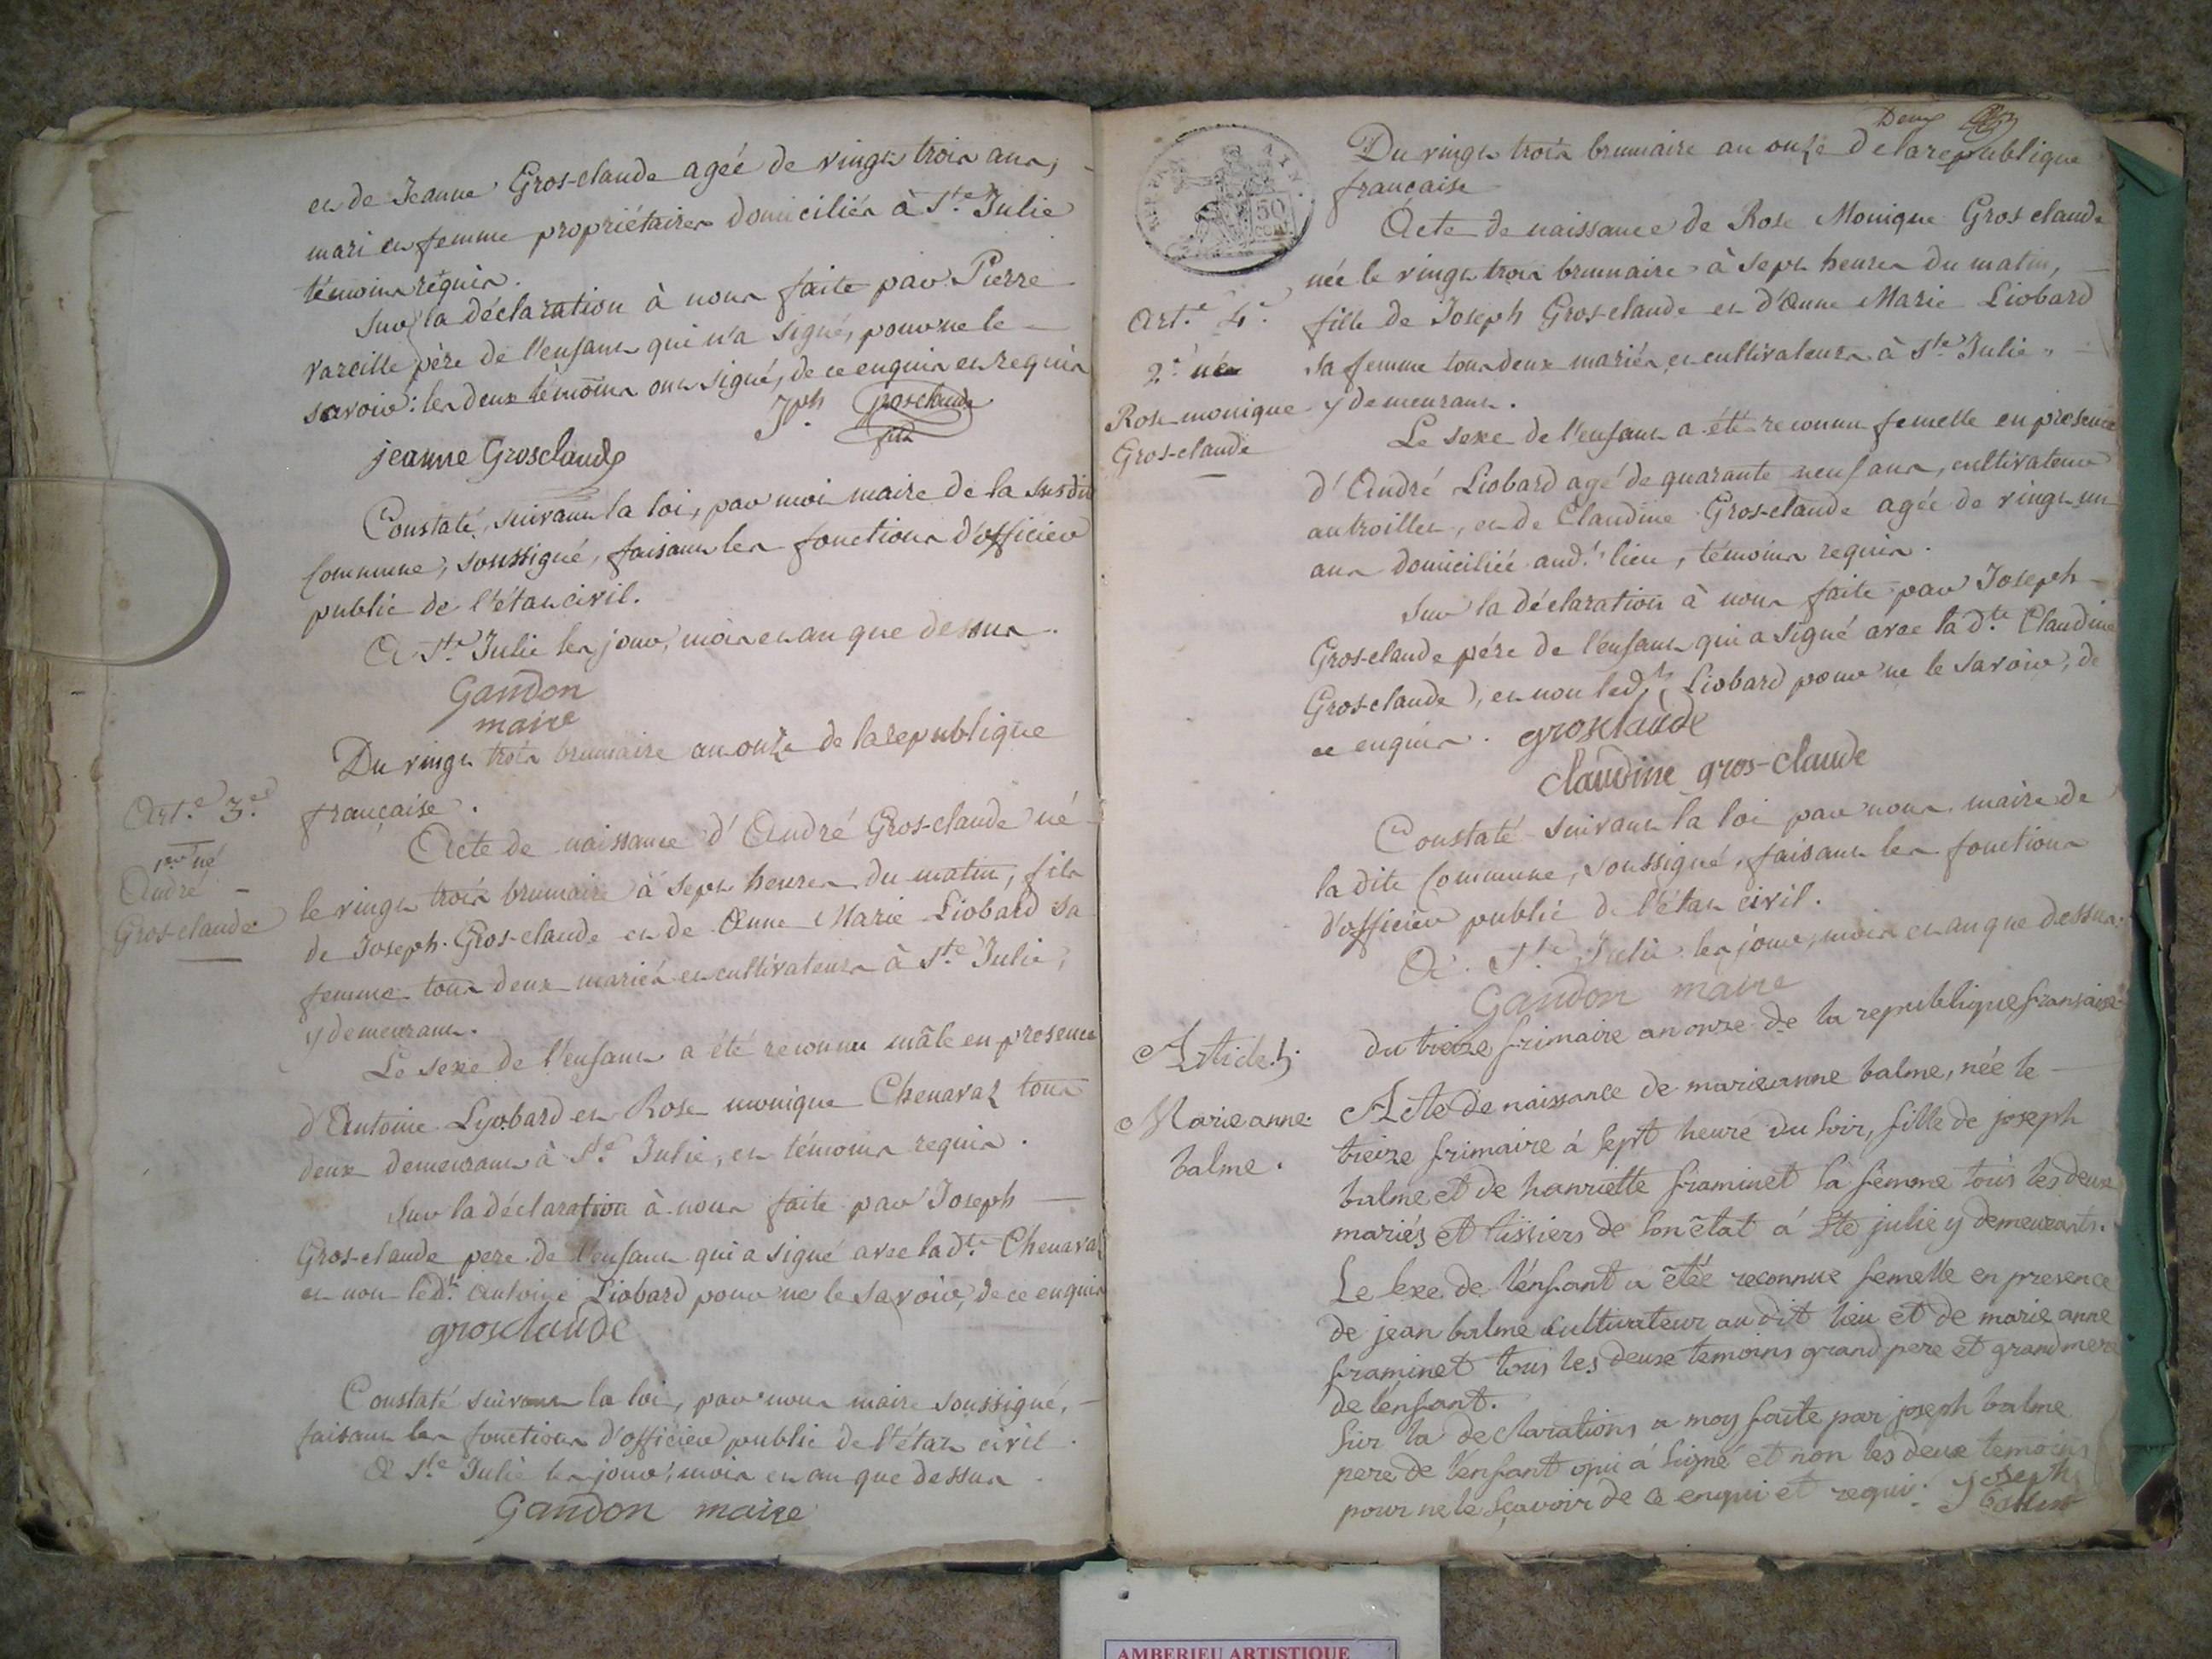 et de Jeanne Gros-claude agée de vingt trois ans,
mari et femme propriétaires domiciliés à Ste. Julie
témoins requis.
Sur la déclaration à nous faite par Pierre
vareille père de l'enfant qui n'a signé, pour ne le
savoir: les deux témoins ont signé, de ce enquis et requis
Jph. groselaude
fils
jeanne Grosclaude
Constaté, suivant la loi, par moi maire de la susdite
Commune, soussigné, faisant les fonctions d'officier
public de l'état civil.
A Ste. Julie les jour, mois et an que dessus.
Gandon
maire
Du vingt trois brumaire an onze de la republique
française.
Art.e 3.e
1er né
André
Gros-claude
Acte de naissance d'André Gros-claude né
le vingt trois brumaire à sept heures du matin, fils
de Joseph Gros-claude et de Anne Marie Liobard sa
femme tous deux mariés et cultivateurs à Ste. Julie,
y demeurant.
Le sexe de l'enfant a été reconnu mâle en presence
d'Antoine Lyobard et Rose monique Chenavaz tous
deux demeurant à Ste. Julie, et témoins requis.
Sur la déclaration à nous faite par Joseph
Gros-claude pere de l'enfant qui a signé avec la dte. Chenavaz
et non led.t Antoine Liobard pour ne le savoir, de ce enquis
grosclaude
Constaté suivant la loi, par nous maire soussigné,
faisant les fonctions d'officier public de l'état civil.
A Ste Julie les jour, mois et an que dessus.
Gandon maire
Deux
50
Du vingt trois brumaire an onze de la republique
française
Art.e 4.e
2.e née
Rose monique
Gros-claude
Acte de naissance de Rose Monique Gros claude
née le vingt trois brumaire à sept heures du matin,
fille de Joseph Gros-claude et d'Anne Marie Liobard
sa femme tous deux mariés et cultivateurs à Ste Julie,
y demeurant.
Le sexe de l'enfant a été reconnu femelle en présence
d'André Liobard agé de quarante neuf ans, cultivateur
au troillet, et de Claudine Gros-claude agée de vingt un
ans domiciliée aud.t lieu, témoins requis.
Sur la déclaration à nous faite par Joseph
Gros-claude pére de l'enfant qui a signé avec la dte Claudine
Gros-claude, et non led.t Liobard pour ne le savoir, de
ce enquis. grosclaude
claudine gros-claude
Constaté suivant la loi par nous maire de
la dite Commune, soussigné, faisant les fonctions
d'officier public de l'état civil.
A Ste Julie les jour, mois et an que dessus.
Gandon maire
Article 5.
Marie anne
balme.
du treize frimaire an onze de la republique fransaise
Acte de naissance de marieanne balme, née le
treize frimaire á sept heure du soir, fille de joseph
balme et de hanriette framinet sa femme tous les deux
mariés et tissiers de son état á Ste julie y demeurants.
Le sexe de lénfant a étée reconnue femelle en presence
de jean balme cultivateur au dit lieu et de marie anne
framinet tous les deux temoins grand pere et grand mere
de lénfant.
Sur la declarations a moy faite par joseph balme
pere de lenfant qui á signé et non les deux temoins
pour ne le sçavoir de ce enqui et requi. Joseph
balme
AMBERIEU ARTISTIQUE